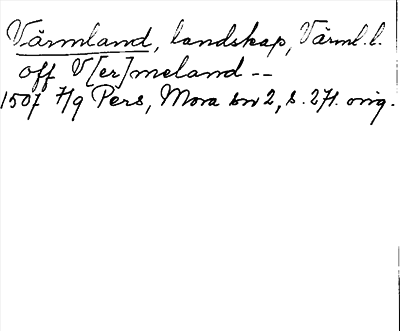 Värmland, landskap, Värml. l.
off V[er]meland --
1507 7/9 Pers, Mora sn 2, s. 271. orig.